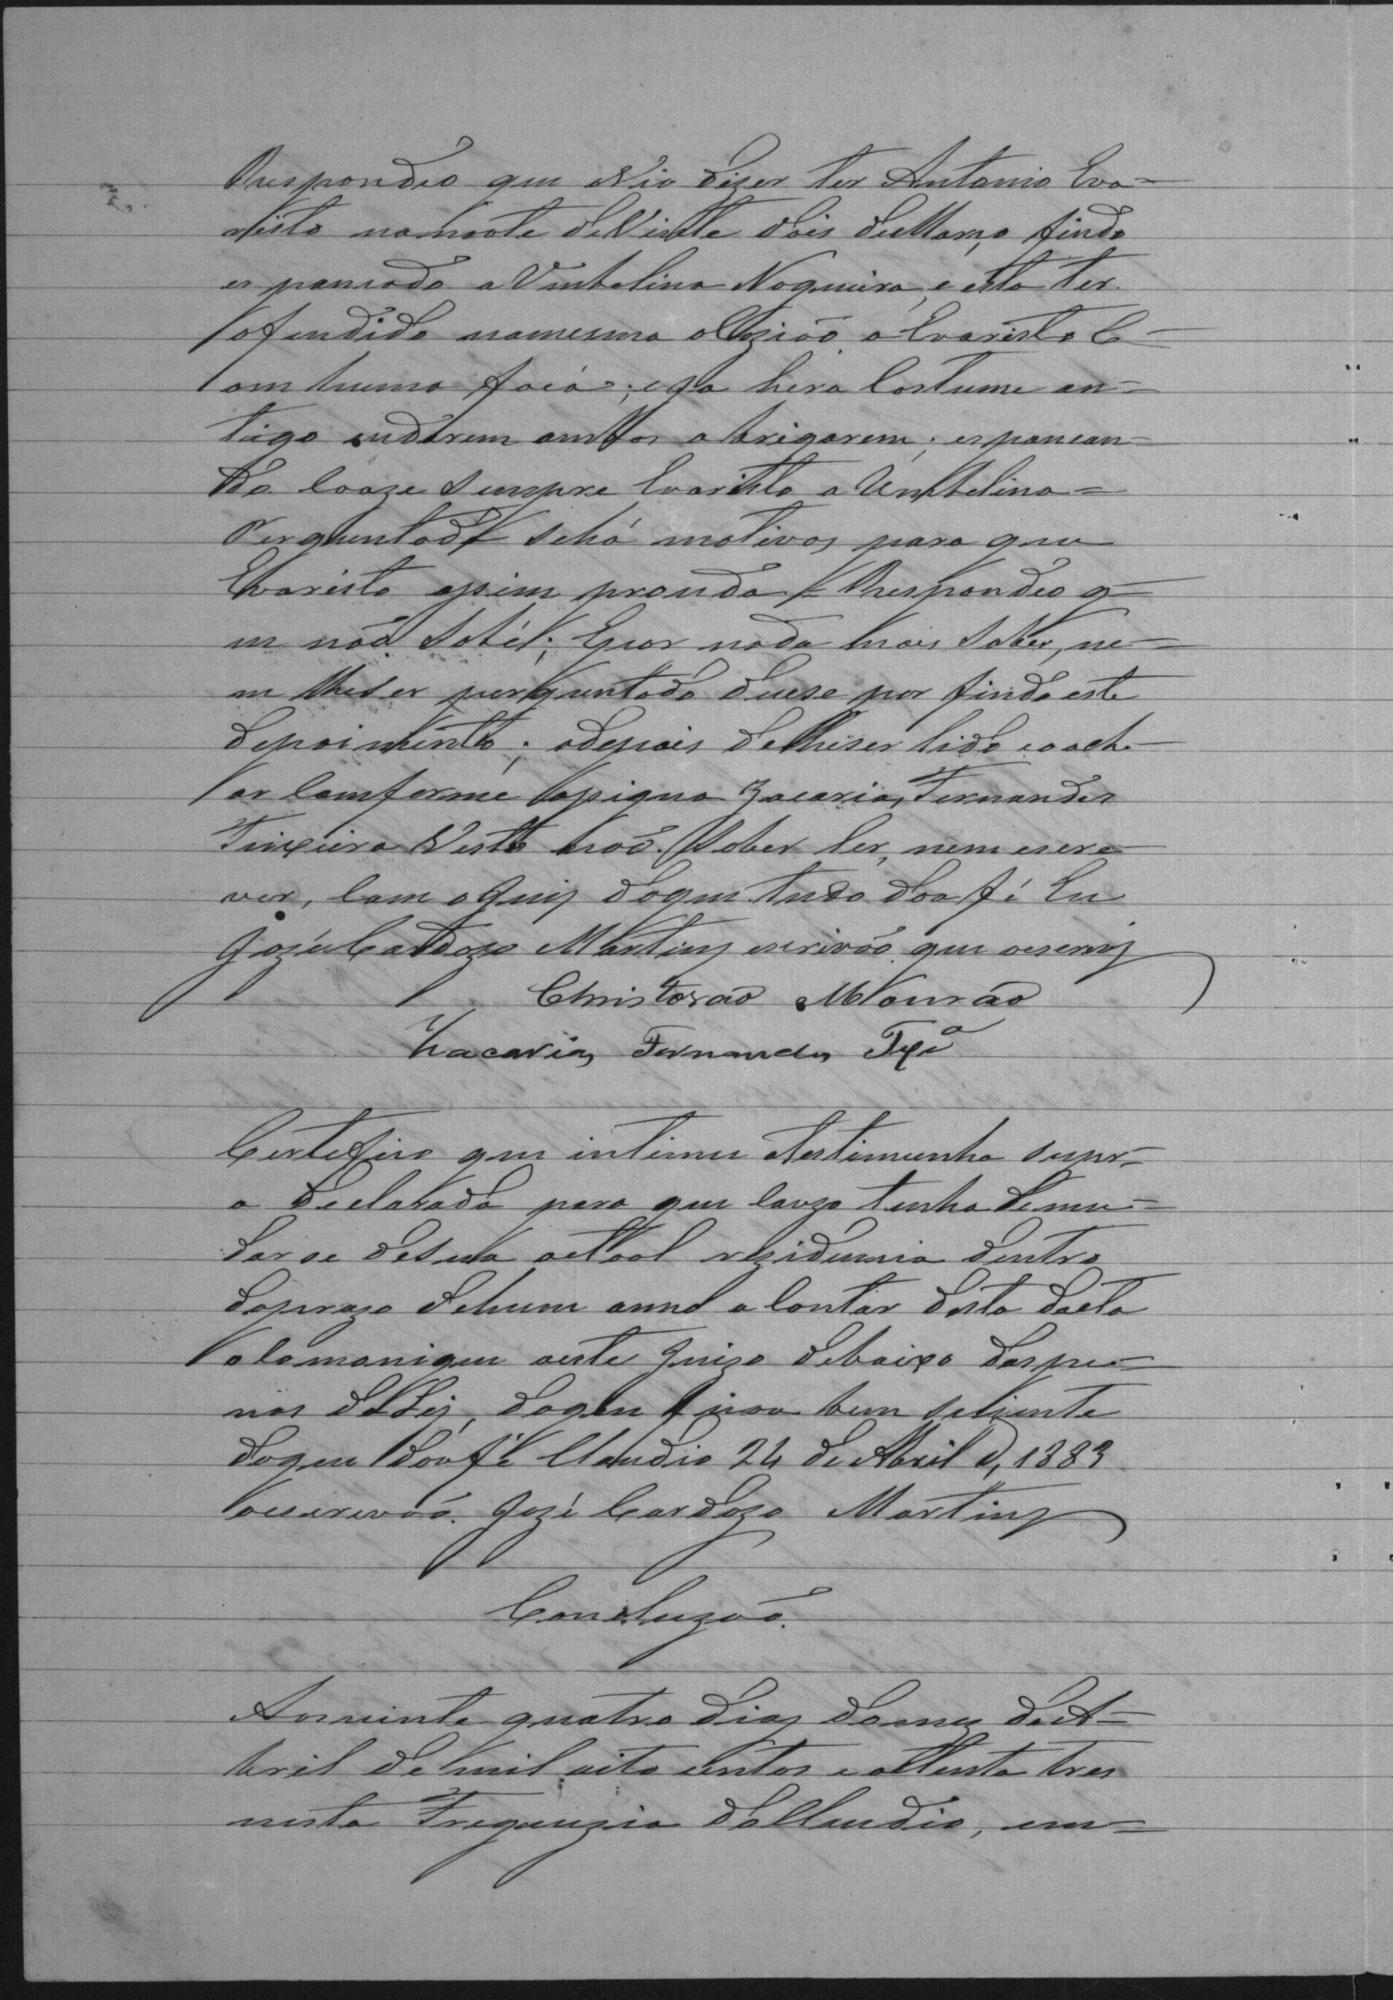 Respondêo que Ovio dizer ter Antonio Eva=
risto nanoote de Vinte dois de Março findo
espancado a Umbelina Nogueira, e esta ter
ofendido namesma occazião o Evaristo C=
om huma faca; e ja hera Costume an=
tigo andarem ambos a brigarem; espancan=
do coaze sempre Evaristo a Umbelina=
Perguntado se há motivos para que
Evaristo assim proceda Respondêo q=
ue não sabe; Epor nada mais saber, ne=
m lheser perguntado deuse por findo este
depoimento; e depois de lheser lido e o ach=
ar Comforme assigna Zacarias Fernandes
Teixeira Visto não saber ler, nem escre=
ver, com o Juis do que tudo dou fé Eu
Jozé Cardozo Martins escrivão que oescrevy
Christovão Mourão
Zacarias Fernandes Tyxª
Certefico que intimei atestimunha supr=
a declarada para que cauzo tenha demu=
darse desua actoal rezidencia dentro
doprazo dehum anno a contar desta dacta
o comonique aeste Juizo debaixo daspe=
nas da Lei, do que ficou bem sciente
doque dou fé Claudio 24 de Abril de 1883
oescrevão. Jozé Cardozo Martins
Concluzão.
Aosvinte quatro dias domez de A=
bril de mil oito centos e oitenta tres
nesta Freguezia do Claudio, em=